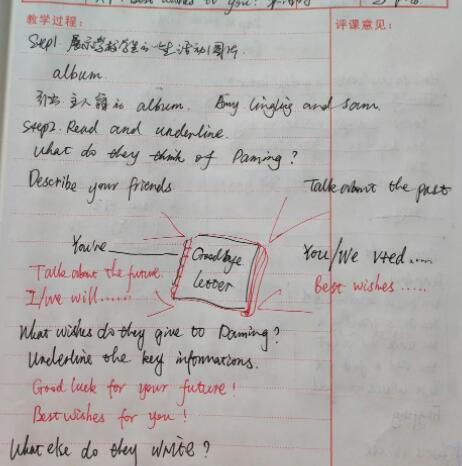 Best wishes to you!
教学过程:
评课意见:
Step1. 展示学校学生的一些活动图片.
album.
引出主人翁的 album. Amy Lingling and Sam.
Step2. Read and underline.
What do they think of Daming?
Describe your friends
Talk about the past
You're
Goodbye
letter
You/We V+ed.....
Talk about the future.
I/we will......
Best wishes .....
What wishes do they give to Daming?
Underline the key informations.
Good luck for your future!
Best wishes for you!
What else do they write?